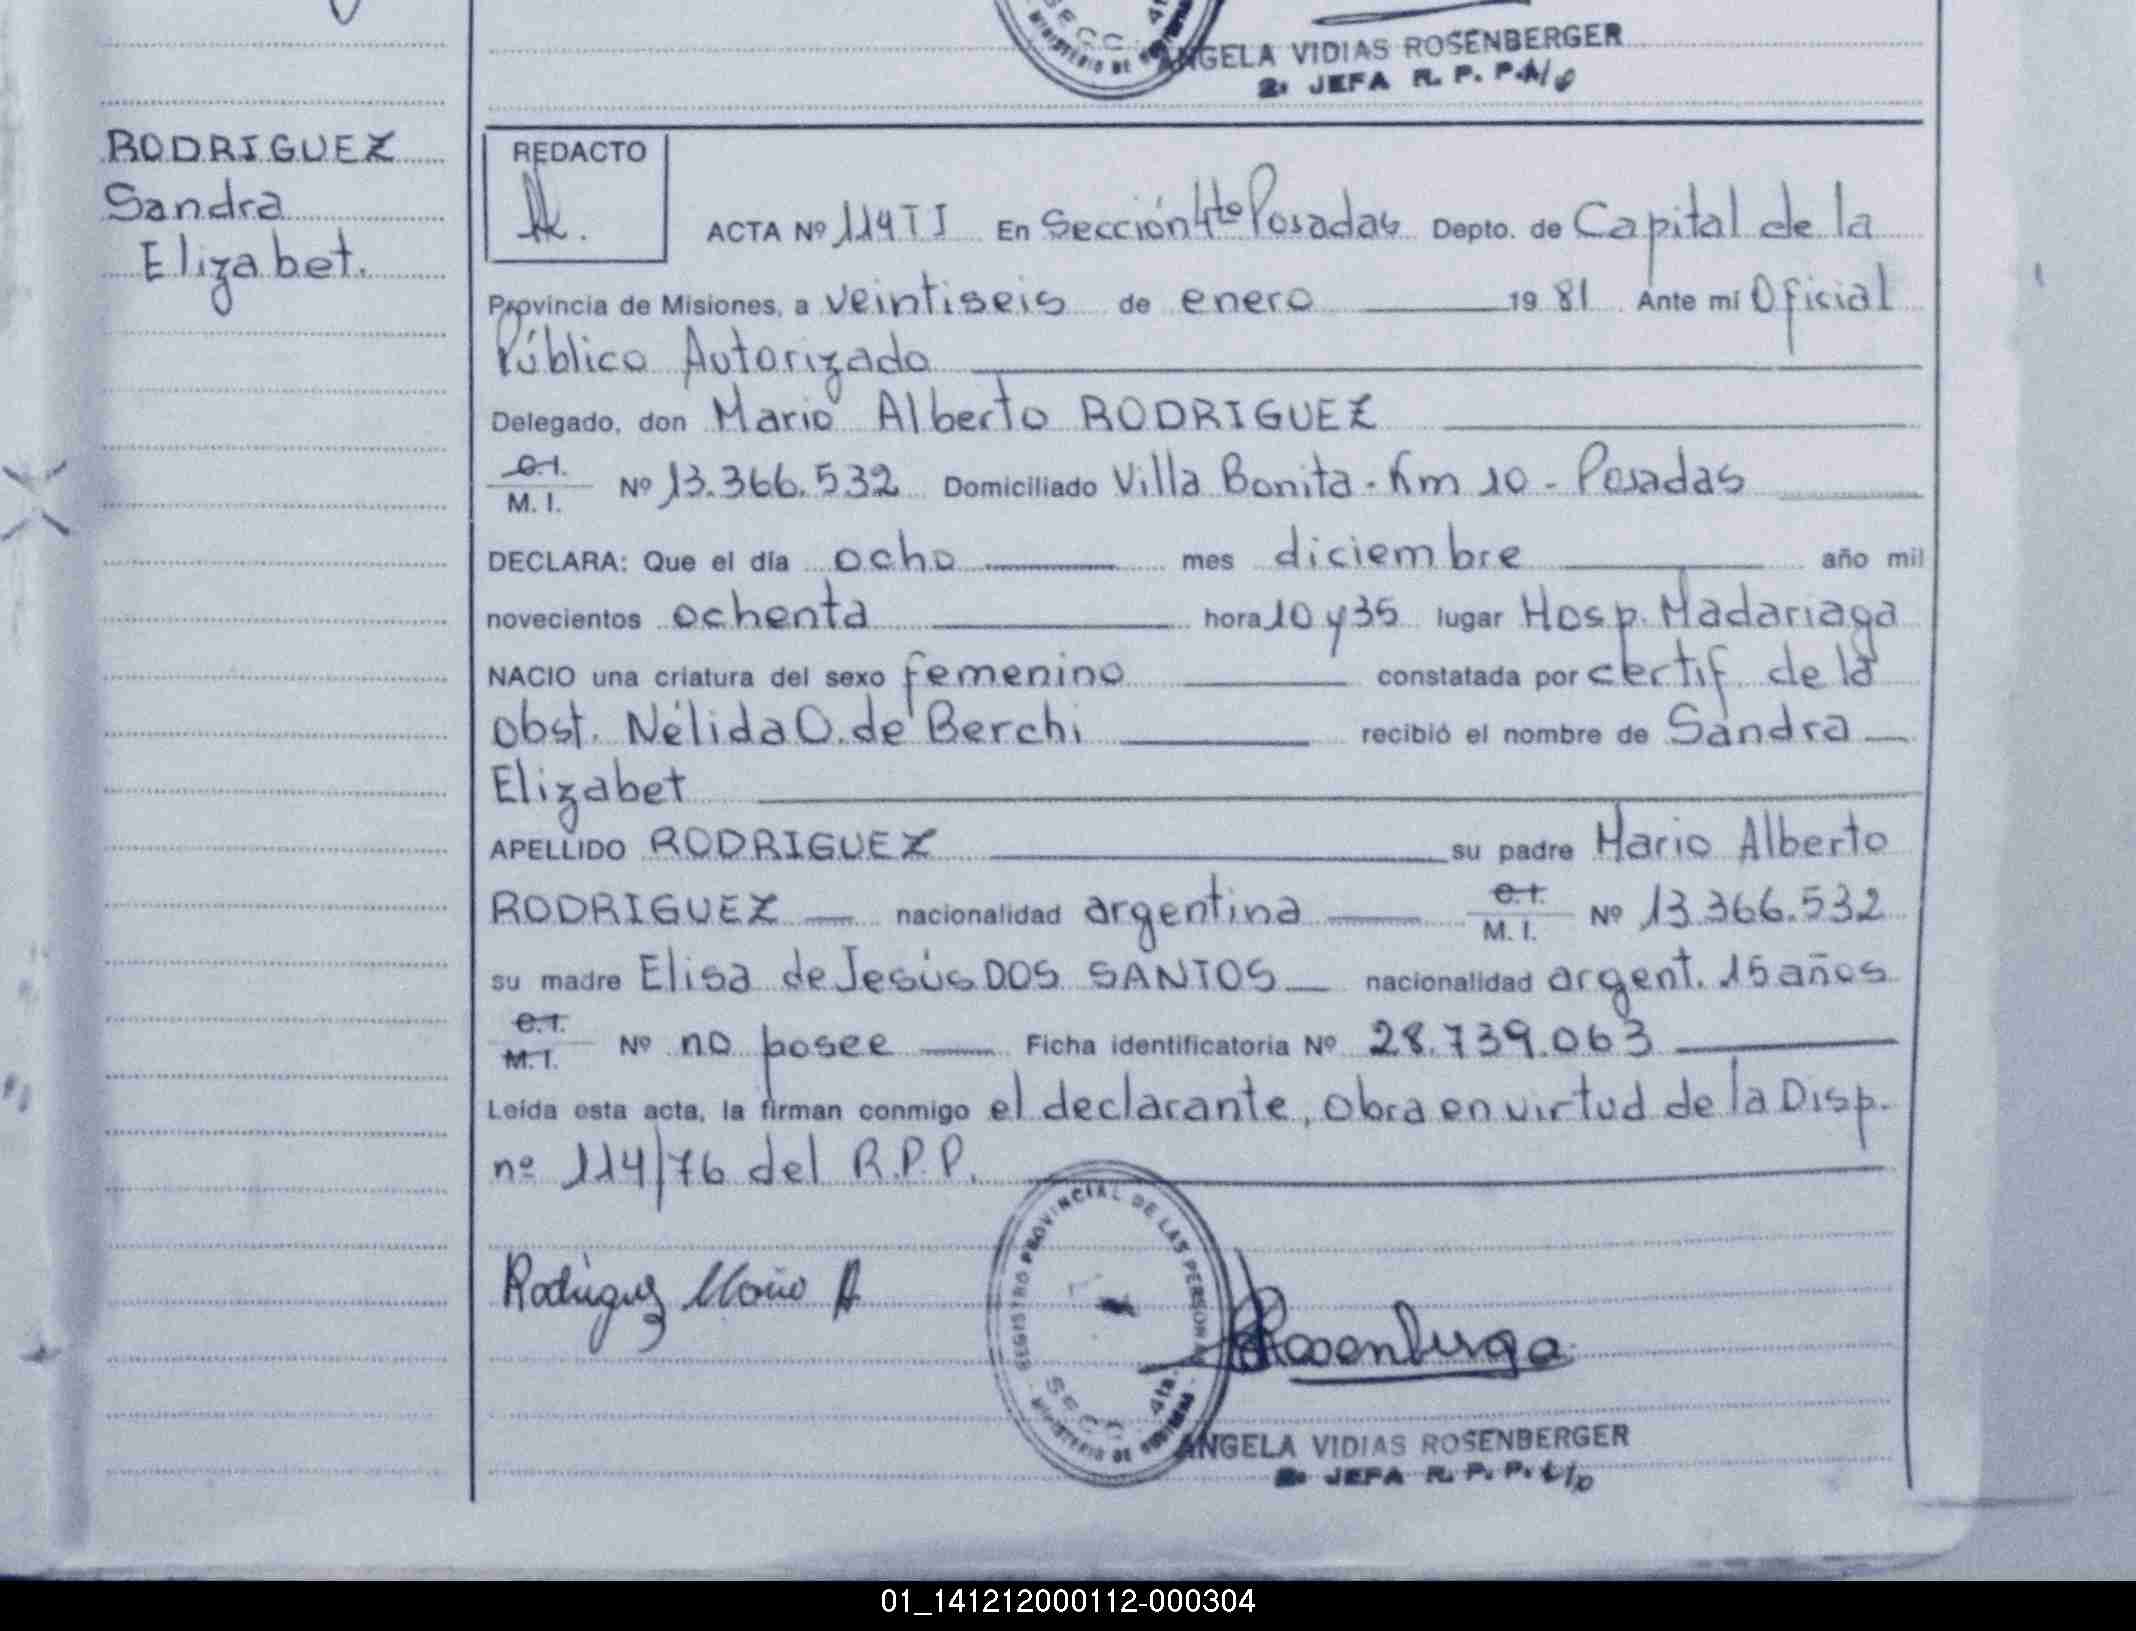 SECC. 4ta.
MINISTERIO DE
ANGELA VIDIAS ROSENBERGER
2a JEFA R. P. P.
RODRIGUEZ
Sandra
Elizabet.
REDACTO
ACTA Nº 114TI En Sección 4ta Posadas Depto. de Capital de la
Provincia de Misiones, a veintiseis de enero 1981 Ante mí Oficial
Público Autorizado
Delegado, don Mario Alberto RODRIGUEZ
C.I.
M. I. Nº 13.366.532 Domiciliado Villa Bonita - Km 10 - Posadas
DECLARA: Que el día ocho mes diciembre año mil
novecientos ochenta hora 10 y 35 lugar Hosp. Madariaga
NACIO una criatura del sexo femenino constatada por certif. de la
obst. Nélida O. de Berchi recibió el nombre de Sandra
Elizabet
APELLIDO RODRIGUEZ su padre Mario Alberto
RODRIGUEZ nacionalidad argentina C.I. M. I. Nº 13.366.532
su madre Elisa de Jesús DOS SANTOS nacionalidad argent. 15 años
C.I.
M.I. Nº no posee Ficha identificatoria Nº 28.739.063
Leída esta acta, la firman conmigo el declarante, obra en virtud de la Disp.
nº 114/76 del R.P.P.
REGISTRO PROVINCIAL DE LAS PERSONAS
Rodriguez Mario A
Rosenberger
SECC. 4ta.
MINISTERIO DE
ANGELA VIDIAS ROSENBERGER
2a JEFA R. P. P.
01_141212000112-000304